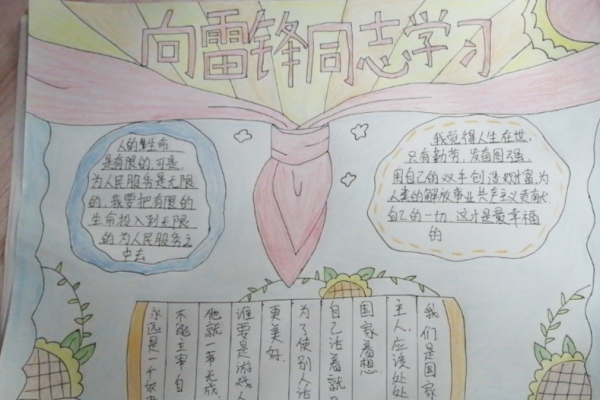 向雷锋同志学习
人的生命
是有限的,可是,
为人民服务是无限
的,我要把有限的
生命投入到无限
的为人民服务之
中去
我觉得人生在世,
只有勤劳,发奋图强,
用自己的双手创造财富,为
人类的解放事业共产主义贡献
自己的一切,这才是最幸福
的
我们是国家
主人,应该处处
国家着想
自己活着就
为了使别人活
更美好.
谁要是游戏人
他就一事无成
不能主宰自
永远是一个奴